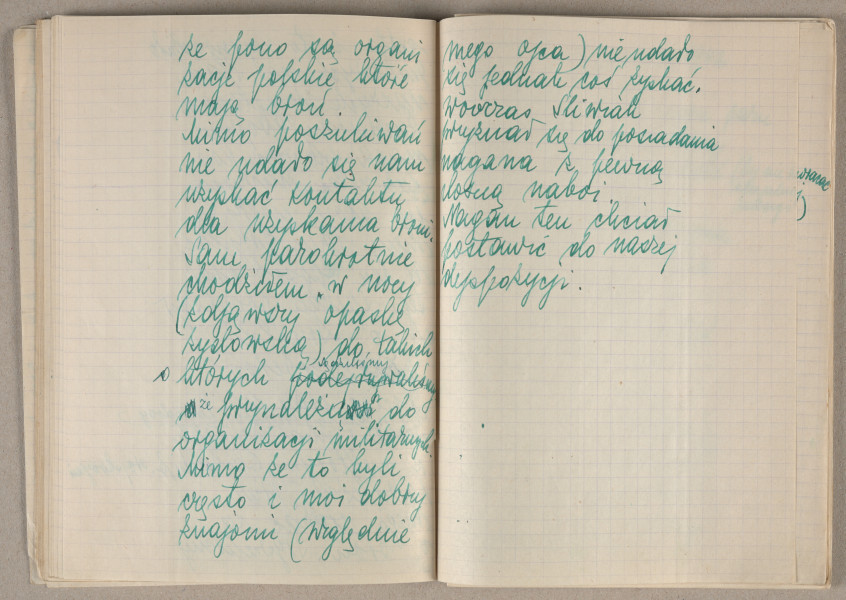 że pono są organi
zacje polskie które
mają broń.
Mimo poszukiwań
nie udało się nam
uzyskać kontaktu
dla uzyskania broni.
Sam parokrotnie
chodziłem w nocy
(zdjąwszy opaskę
żydowską) do takich
o których podejrzywaliśmy
że przynależą do
organizacji militarnych.
Mimo że to byli
często i moi dobrzy
znajomi (względnie
mego ojca) nie udało
się jednak coś zyskać.
wówczas Śliwiak
wyznał się do posiadania
nagana z pewną
ilością naboi.
Nagan ten chciał
postawić do naszej
dyspozycji.